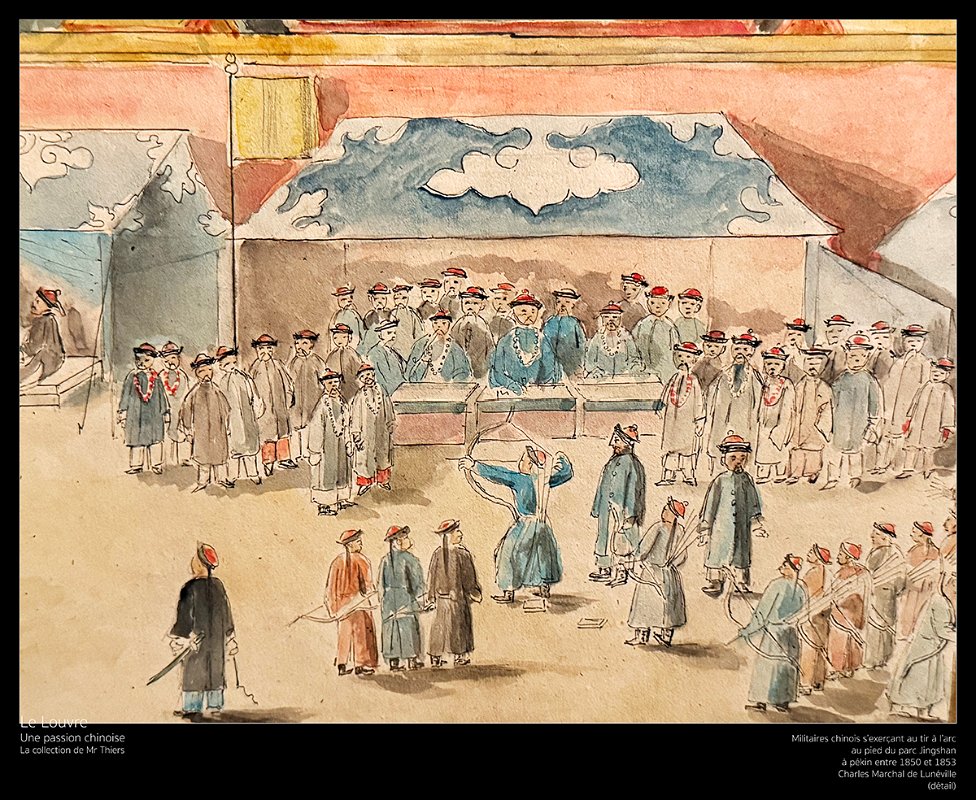 Le Louvre
Une passion chinoise
La collection de Mr Thiers
Militaires chinois s'exerçant au tir à l'arc
au pied du parc Jingshan
à pékin entre 1850 et 1853
Charles Marchal de Lunéville
(détail)